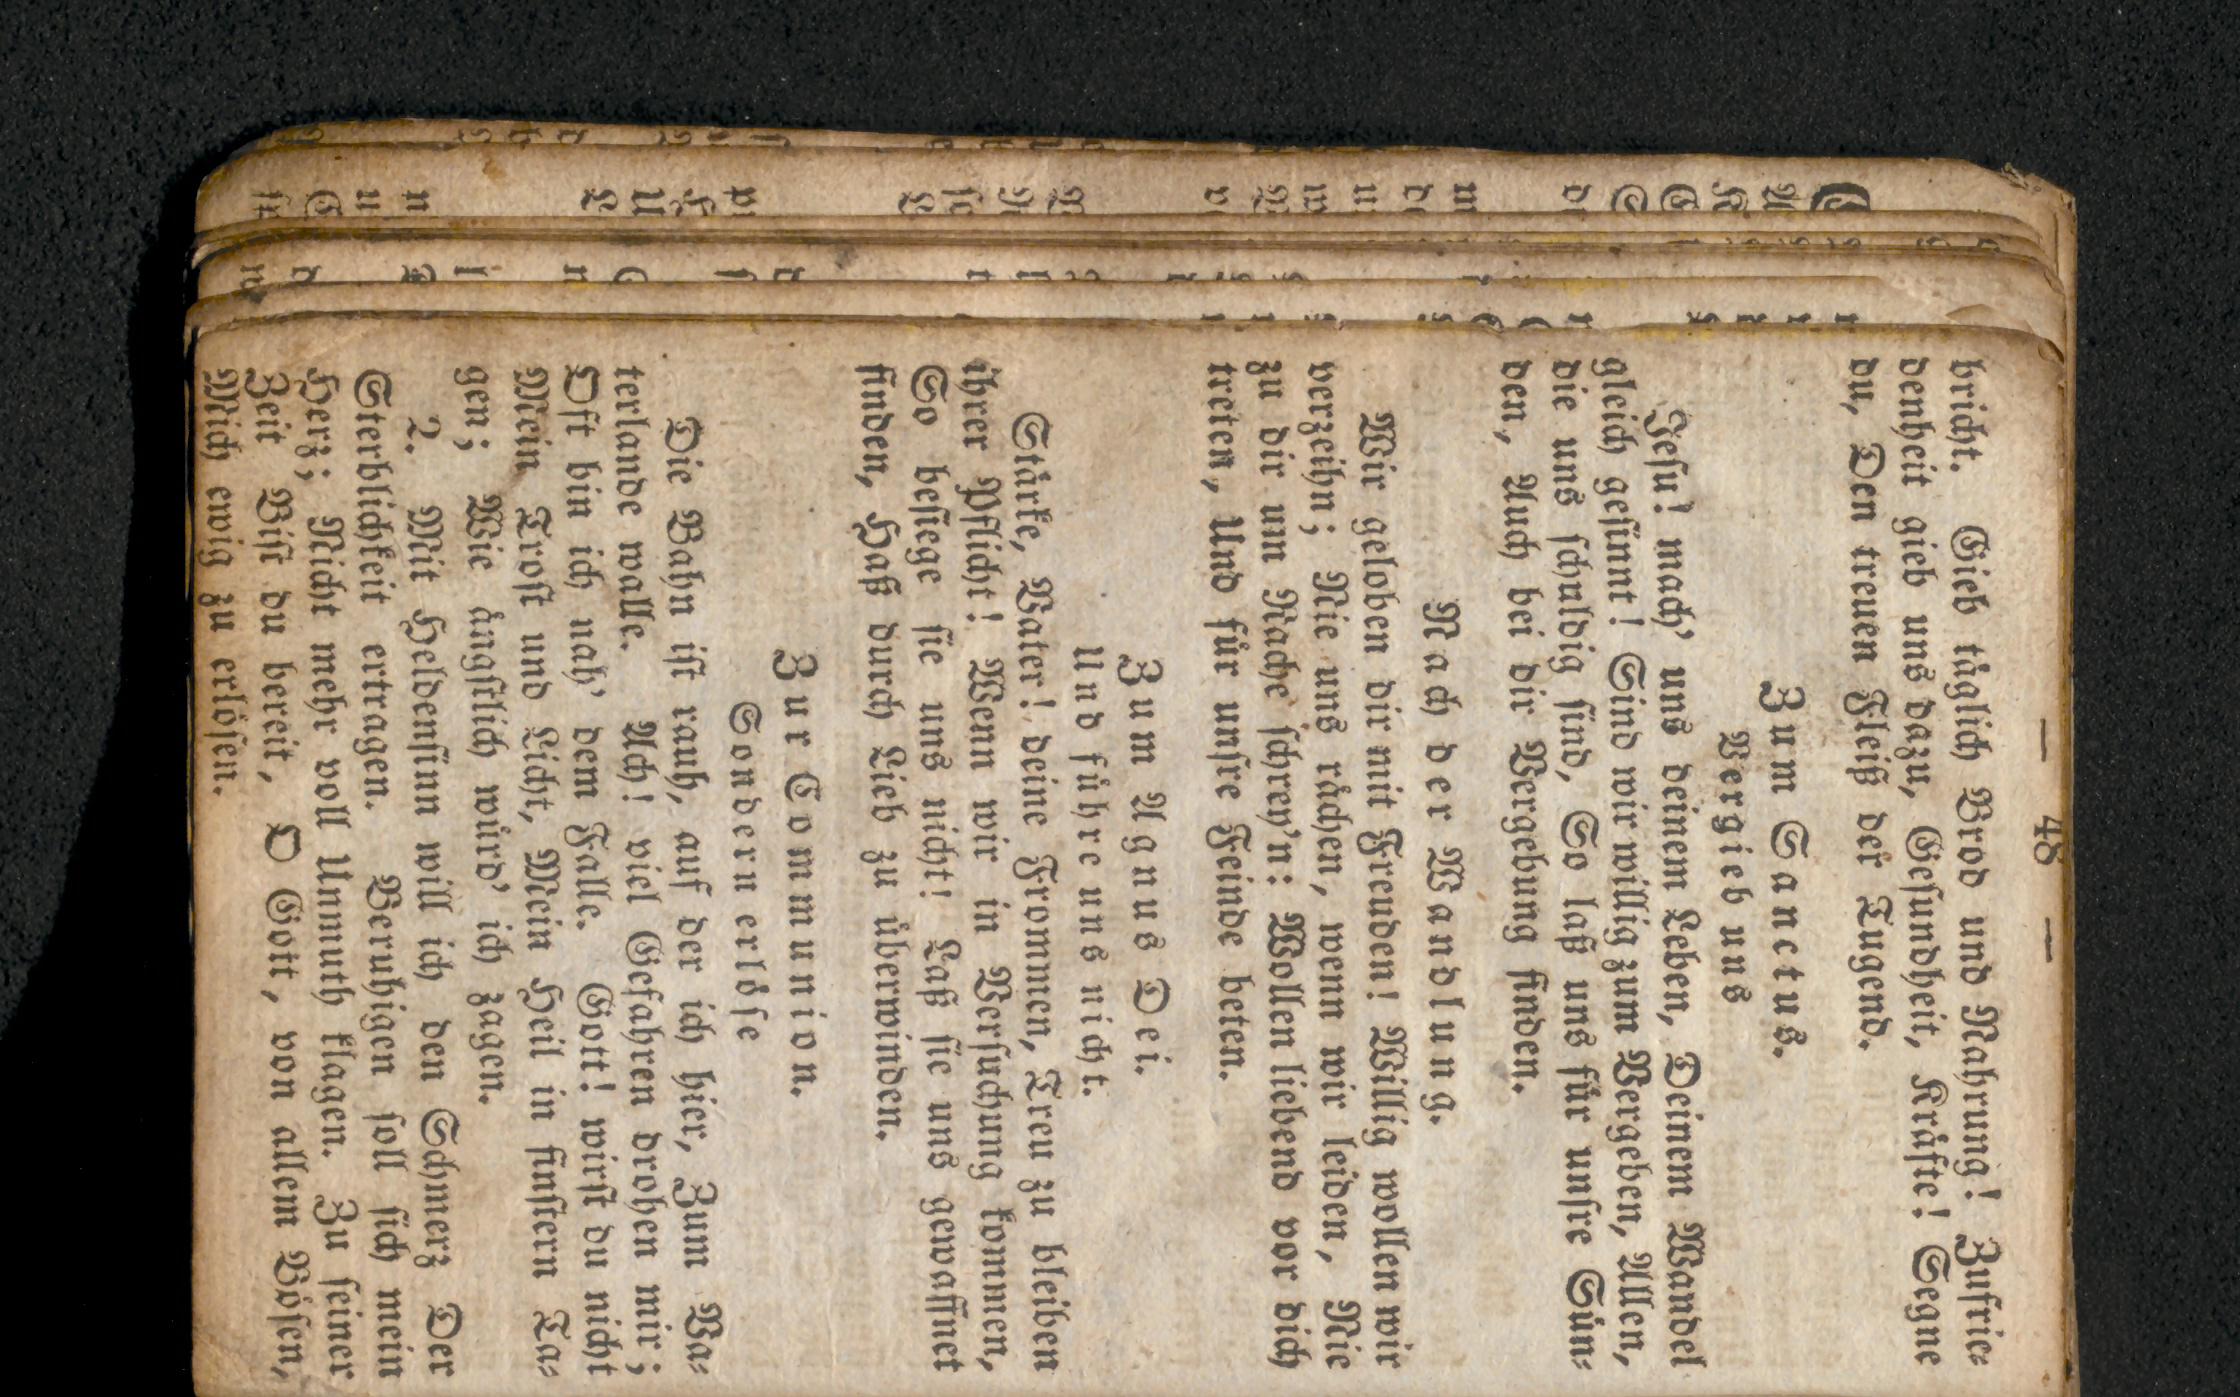 — 48 —
bricht. Gieb täglich Brod und Nahrung! Zufrie-
denheit gieb uns dazu, Gesundheit, Kräfte! Segne
du, Den treuen Fleiß der Tugend.
Zum Sanctus.
Vergieb uns
Jesu! mach' uns deinem Leben, Deinem Wandel
gleich gesinnt! Sind wir willig zum Vergeben, Allen,
die uns schuldig sind, So laß uns für unsre Sün-
den, Auch bei dir Vergebung finden.
Nach der Wandlung.
Wir geloben dir mit Freuden! Willig wollen wir
verzeihn; Nie uns rächen, wenn wir leiden, Nie
zu dir um Rache schrey'n: Wollen liebend vor dich
treten, Und für unsre Feinde beten.
Zum Agnus Dei.
Und führe uns nicht.
Stärke, Vater! deine Frommen, Treu zu bleiben
ihrer Pflicht! Wenn wir in Versuchung kommen,
So besiege sie uns nicht! Laß sie uns gewaffnet
finden, Haß durch Lieb zu überwinden.
Zur Communion.
Sondern erlöse
Die Bahn ist rauh, auf der ich hier, Zum Va-
terlande walle. Ach! viel Gefahren drohen mir;
Oft bin ich nah' dem Falle. Gott! wirst du nicht
Mein Trost und Licht, Mein Heil in finstern Ta-
gen; Wie ängstlich würd' ich zagen.
2. Mit Heldensinn will ich den Schmerz Der
Sterblichkeit ertragen. Beruhigen soll sich mein
Herz; Nicht mehr voll Unmuth klagen. Zu seiner
Zeit Bist du bereit, O Gott, von allem Bösen,
Mich ewig zu erlösen.